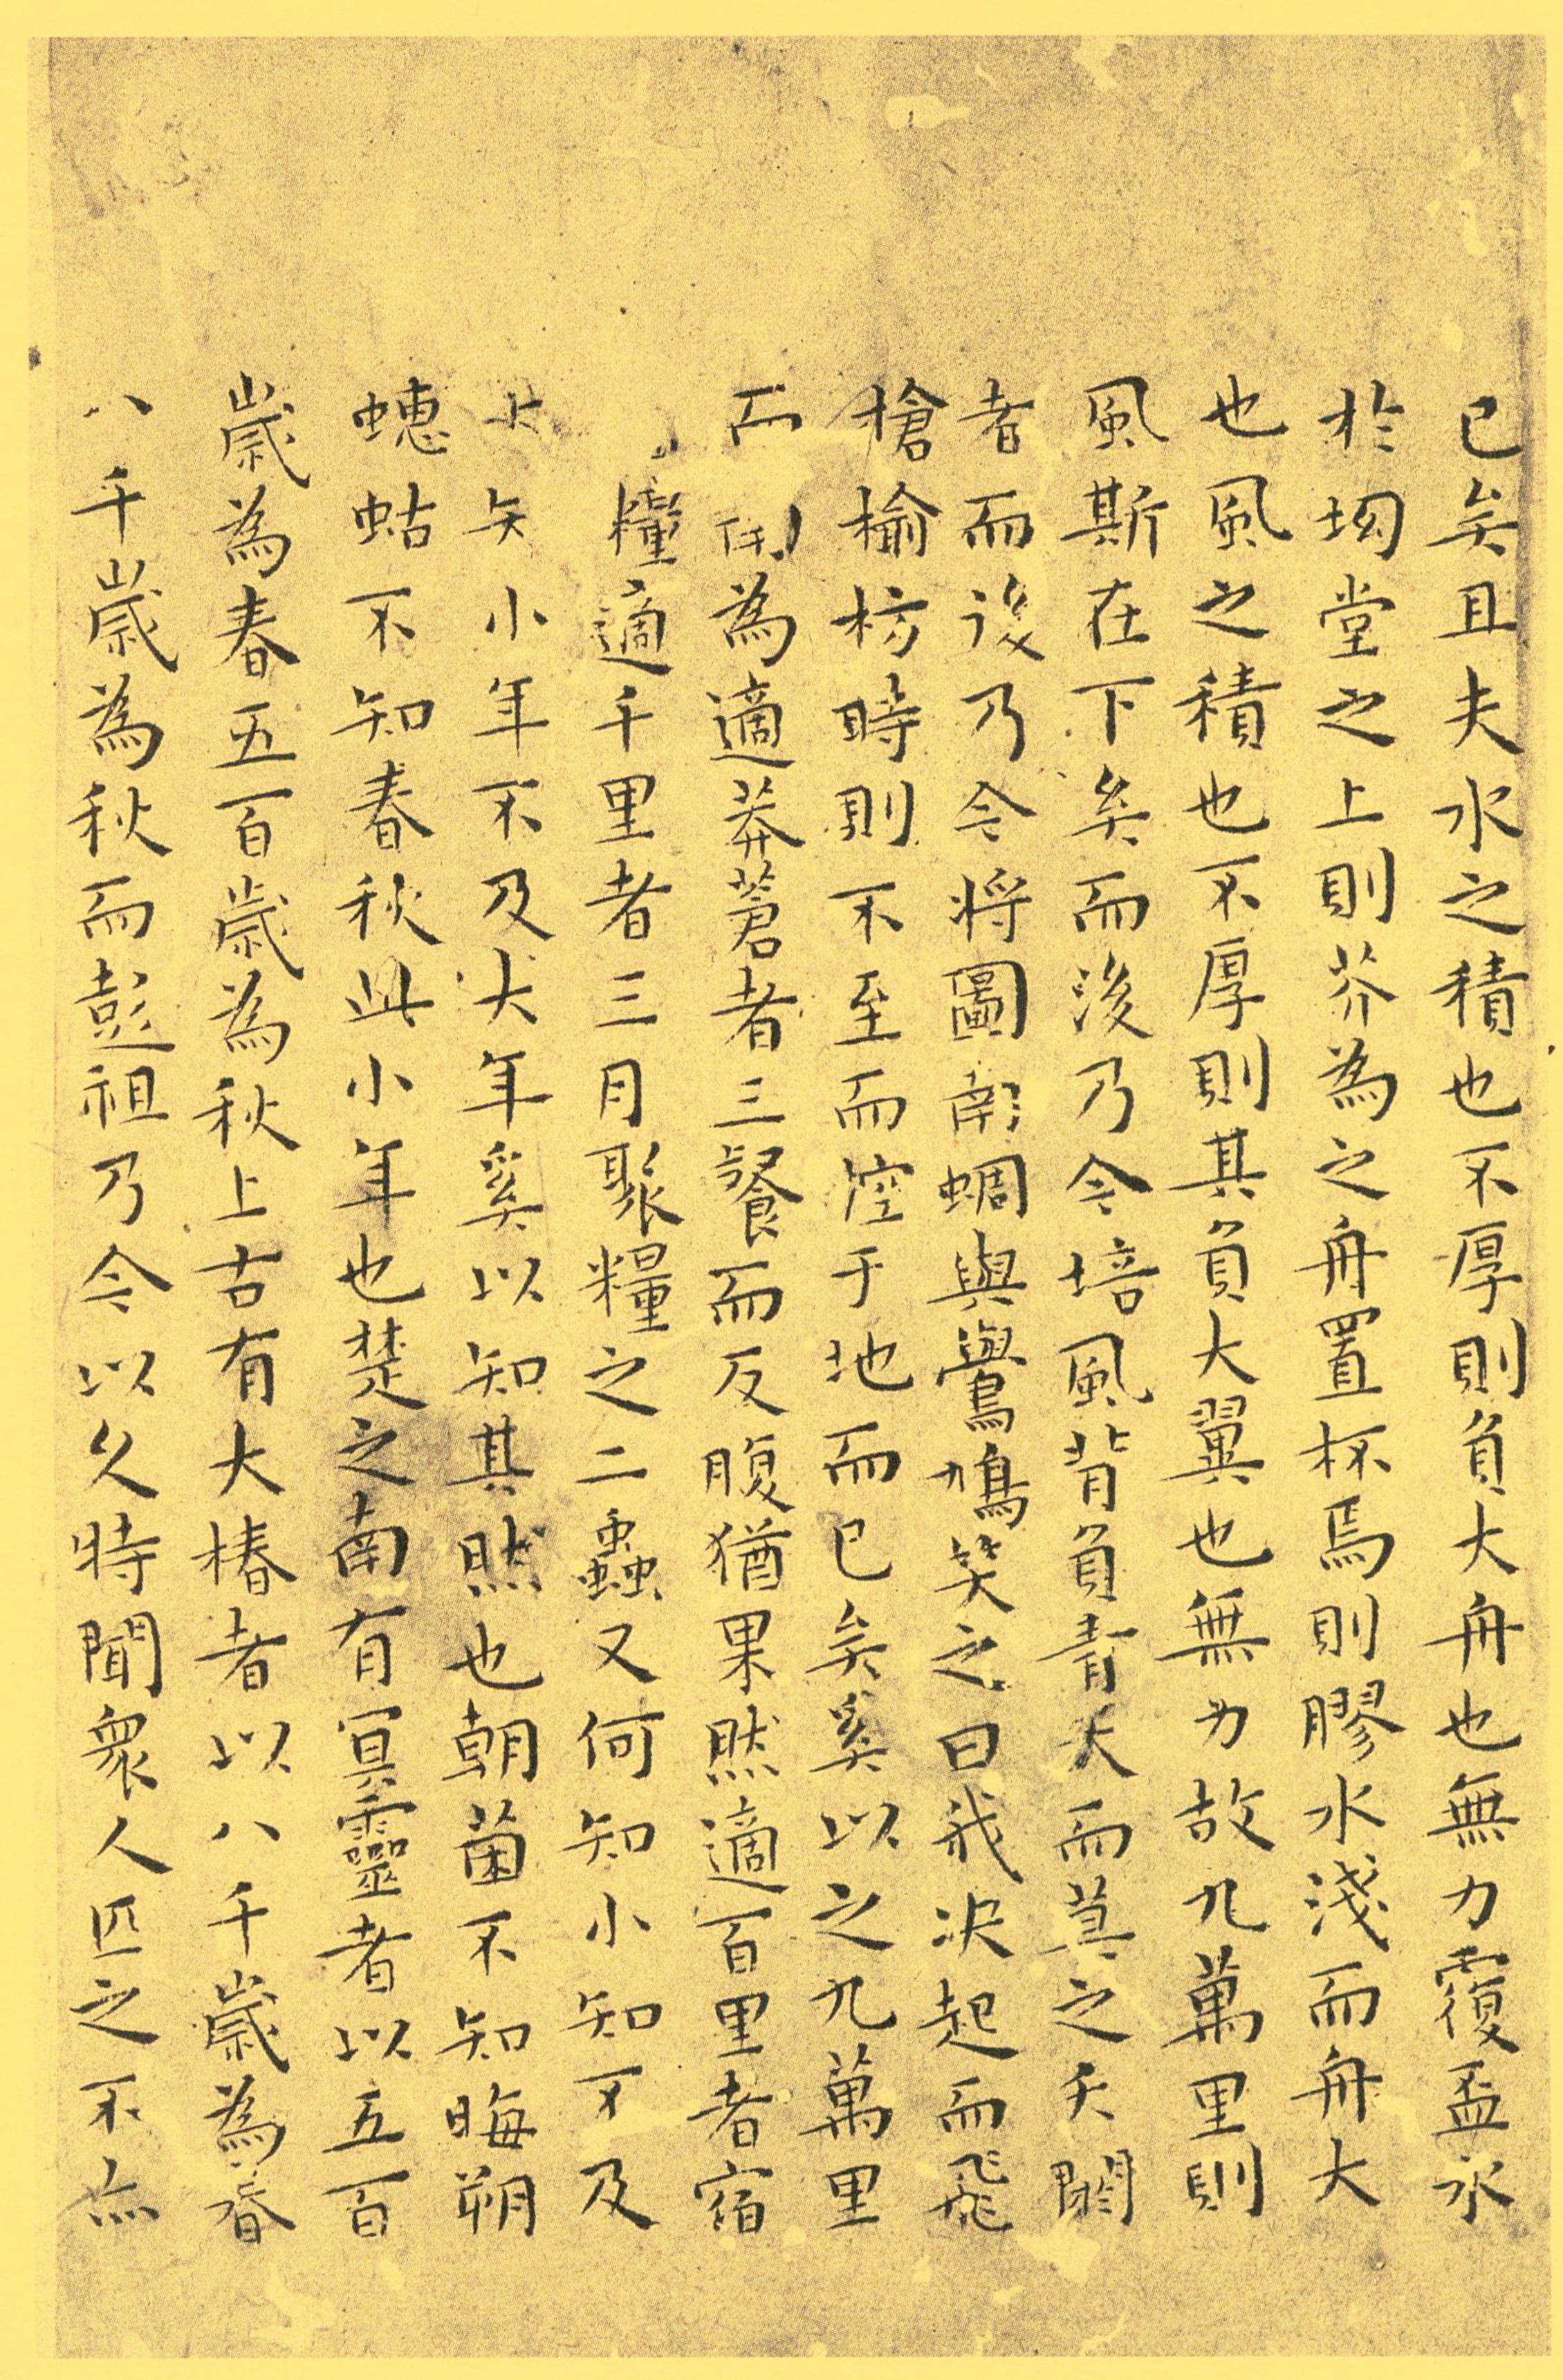 已矣且夫水之積也不厚則負大舟也無力覆盃水
於坳堂之上則芥為之舟置杯焉則膠水淺而舟大
也風之積也不厚則其負大翼也無力故九萬里則
風斯在下矣而後乃今培風背負青天而莫之夭閼
者而後乃今將圖南蜩與鷽鳩笑之曰我決起而飛
槍榆枋時則不至而控于地而已矣奚以之九萬里
而為適莽蒼者三飡而反腹猶果然適百里者宿
糧適千里者三月聚糧之二蟲又何知小知不及
大知小年不及大年奚以知其然也朝菌不知晦朔
蟪蛄不知春秋此小年也楚之南有冥靈者以五百
歲為春五百歲為秋上古有大椿者以八千歲為春
八千歲為秋而彭祖乃今以久特聞衆人匹之不亦